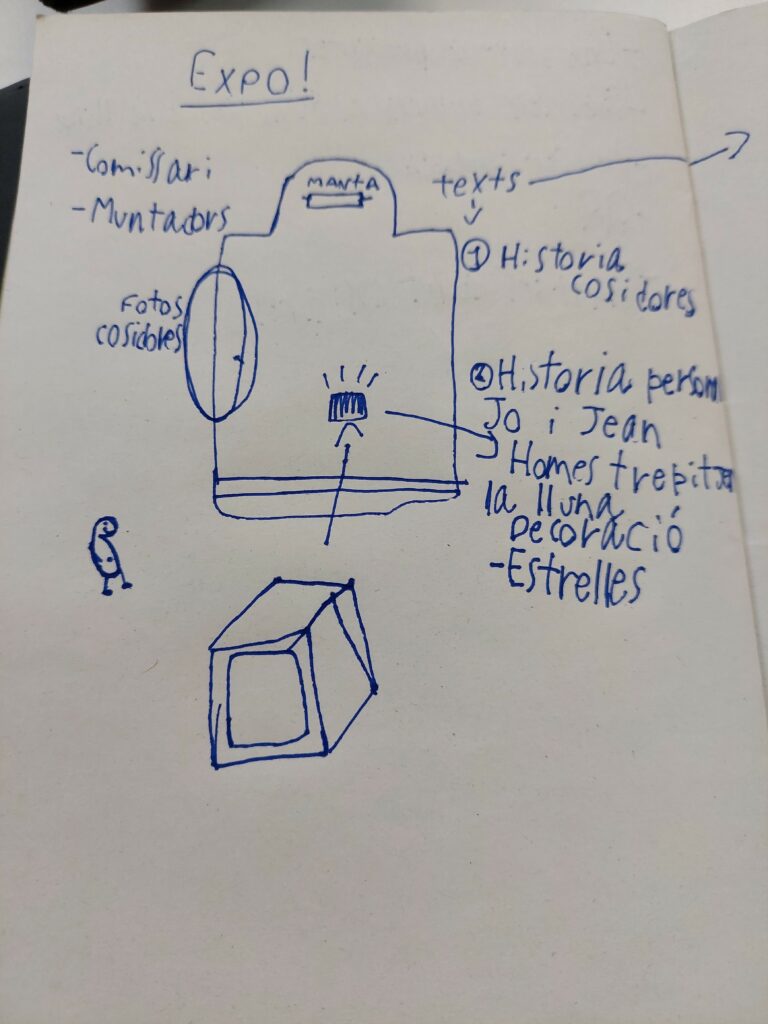 Expo!
-Comissari
-Muntadors
MANTA
texts
Fotos
cosidores
① Historia
cosidores
② Historia person
Jo i Jean
Homes trepitjen
la lluna
Decoració
-Estrelles